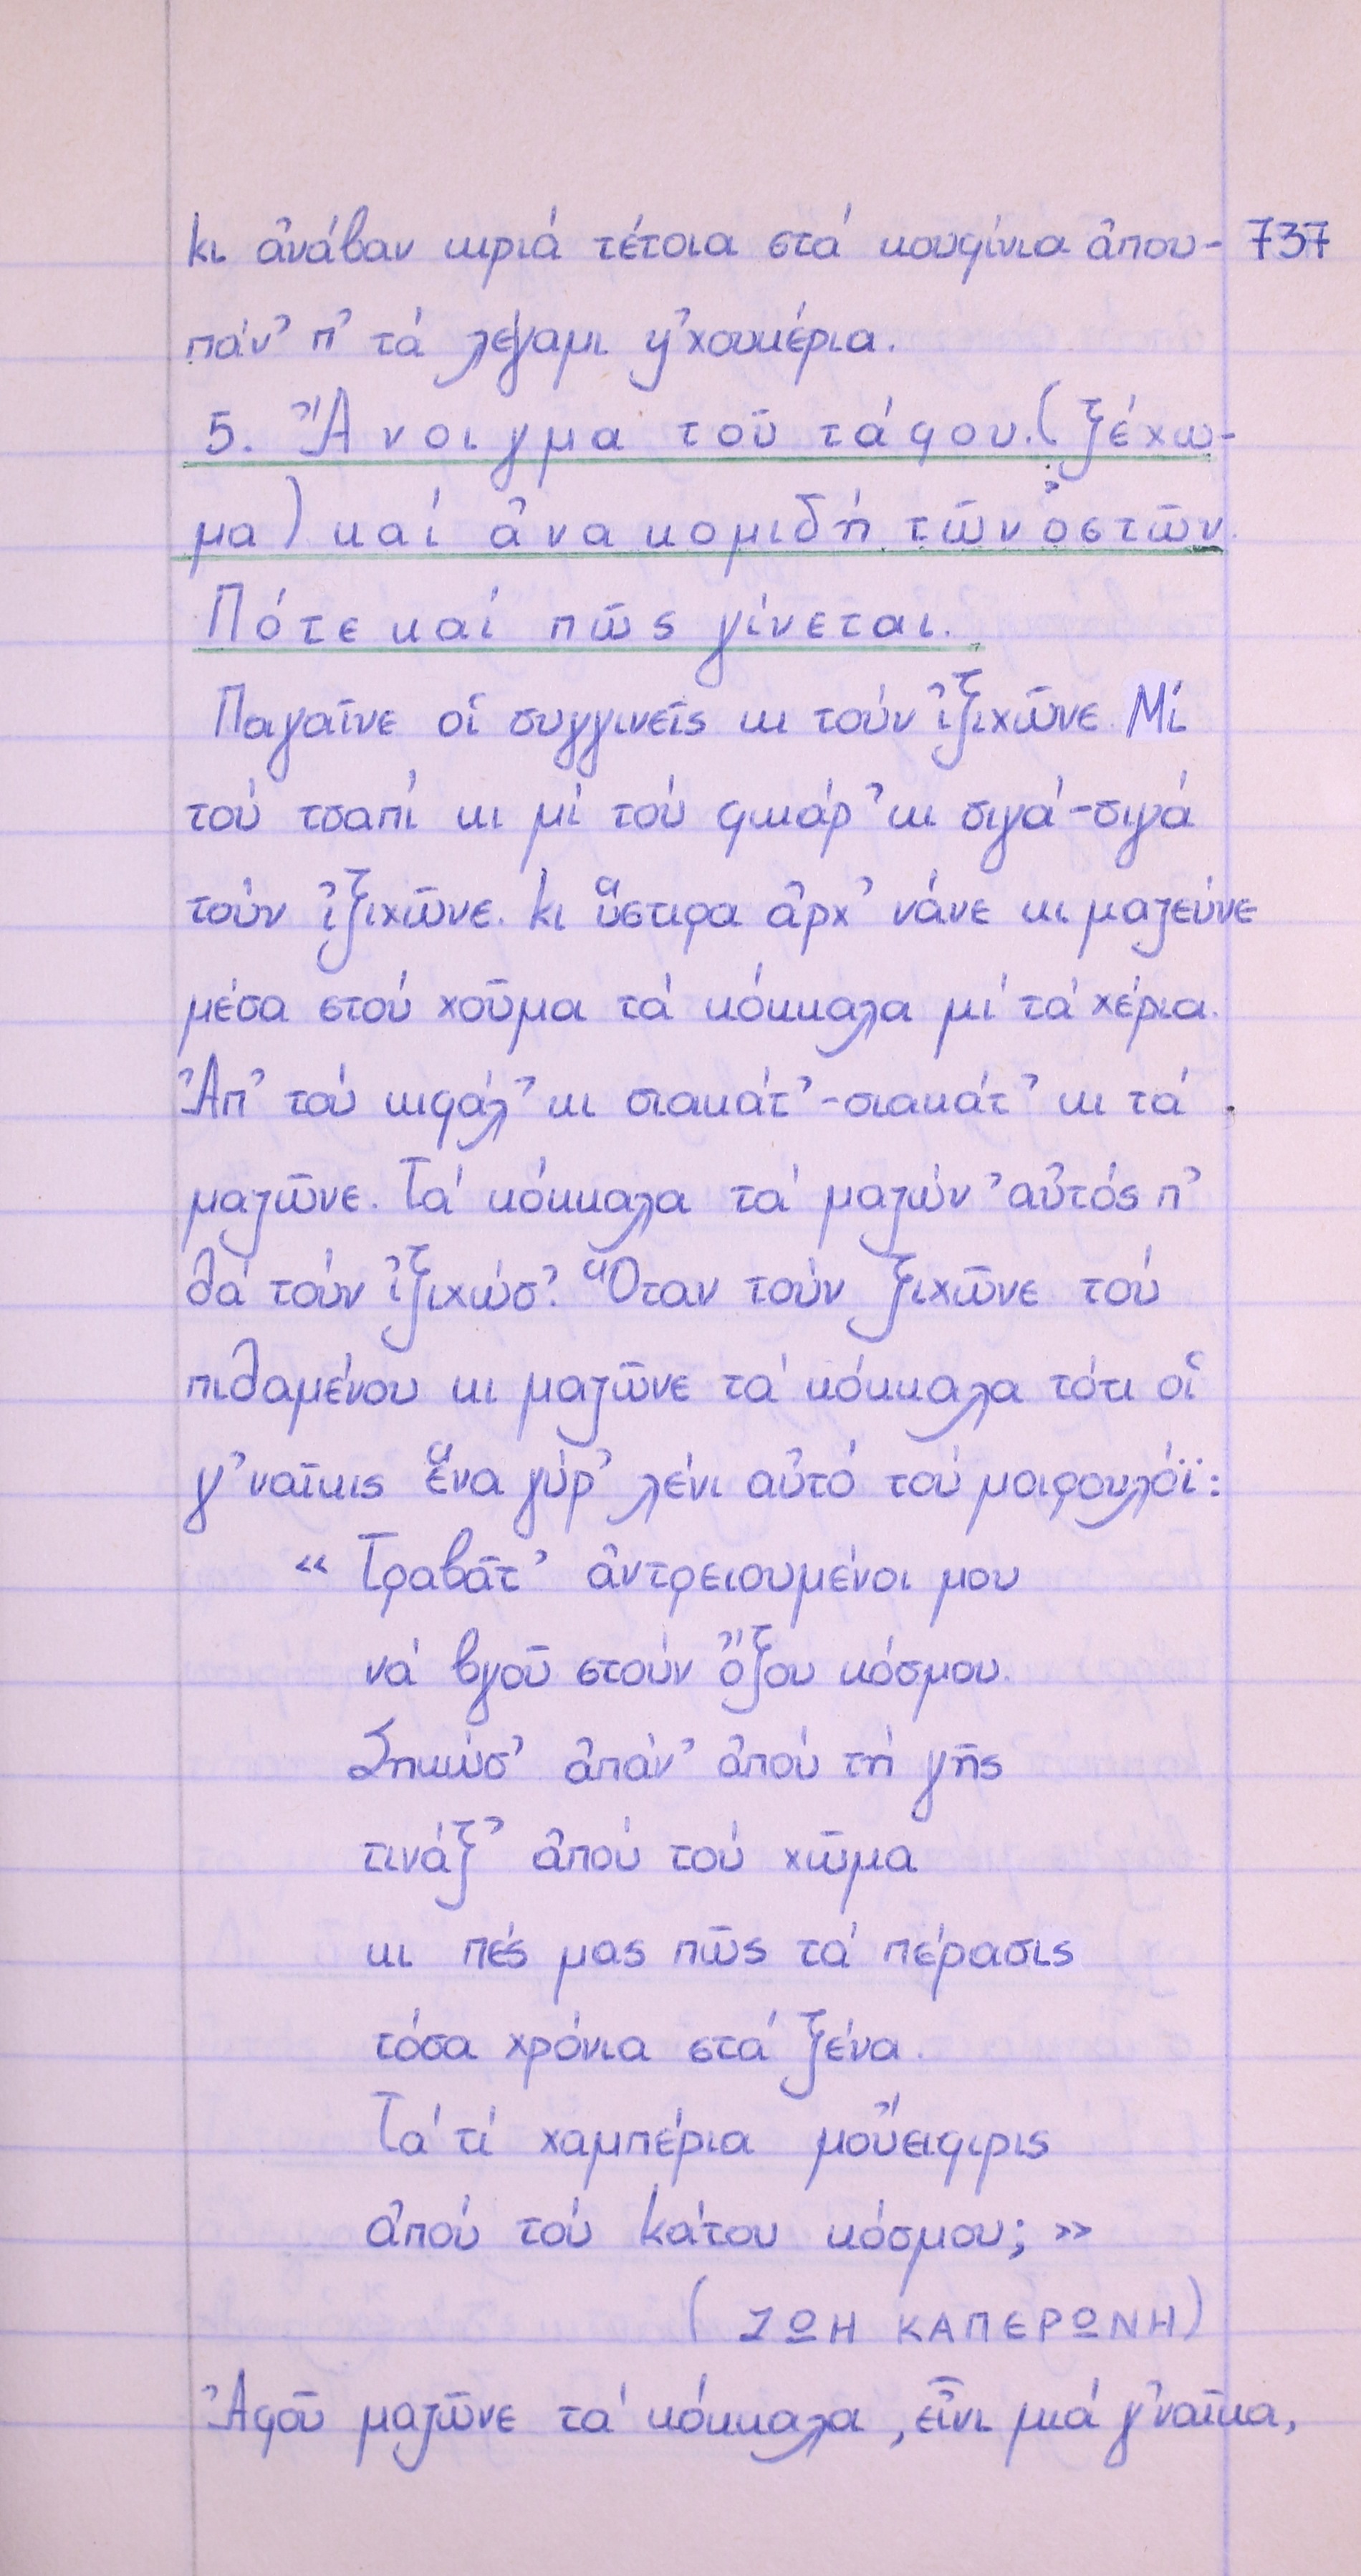 κι ἀνάβαν κιριά τέτοια στά κουφίνια ἀπου- 737
πάν᾿ π᾿ τά λέγαμι γ᾿χουκέρια.
5. Ἄνοιγμα τοῦ τάφου. (ξέχω-
μα) καί ἀνακομιδή τῶν ὀστῶν.
Πότε καί πῶς γίνεται.
Παγαῖνε οἱ συγγινεῖς κι τούν ἰξιχῶνε. Μί
τού τσαπί κι μί τού φκιάρ᾿ κι σιγά-σιγά
τούν ἰξιχῶνε. κι ὕστιρα ἀρχ᾿νάνε κι μαζεύνε
μέσα στού χοῦμα τά κόκκαλα μί τά χέρια.
Ἀπ᾿ τού κιφάλ᾿ κι σιακάτ᾿-σιακάτ᾿ κι τά
μαζῶνε. Τά κόκκαλα τά μαζών᾿ αὐτός π᾿
θά τούν ἰξιχώσ᾿. Ὅταν τούν ξιχῶνε τού
πιθαμένου κι μαζῶνε τά κόκκαλα τότι οἱ
γ᾿ναῖκις ἕνα γύρ᾿ λένι αὐτό τού μοιρουλόϊ:
« Τραβᾶτ᾿ ἀντρειουμένοι μου
νά βγοῦ στούν ὄξου κόσμου.
Σηκώσ᾿ ἀπάν᾿ ἀπού τή γῆς
τινάξ᾿ ἀπού τού χῶμα
κι πές μας πῶς τά πέρασις
τόσα χρόνια στά ξένα.
Τά τί χαμπέρια μοὔειφιρις
ἀπού τού κάτου κόσμου; »
( ΖΩΗ ΚΑΠΕΡΩΝΗ)
Ἀφοῦ μαζῶνε τά κόκκαλα, εἶνι μιά γ᾿ναῖκα,